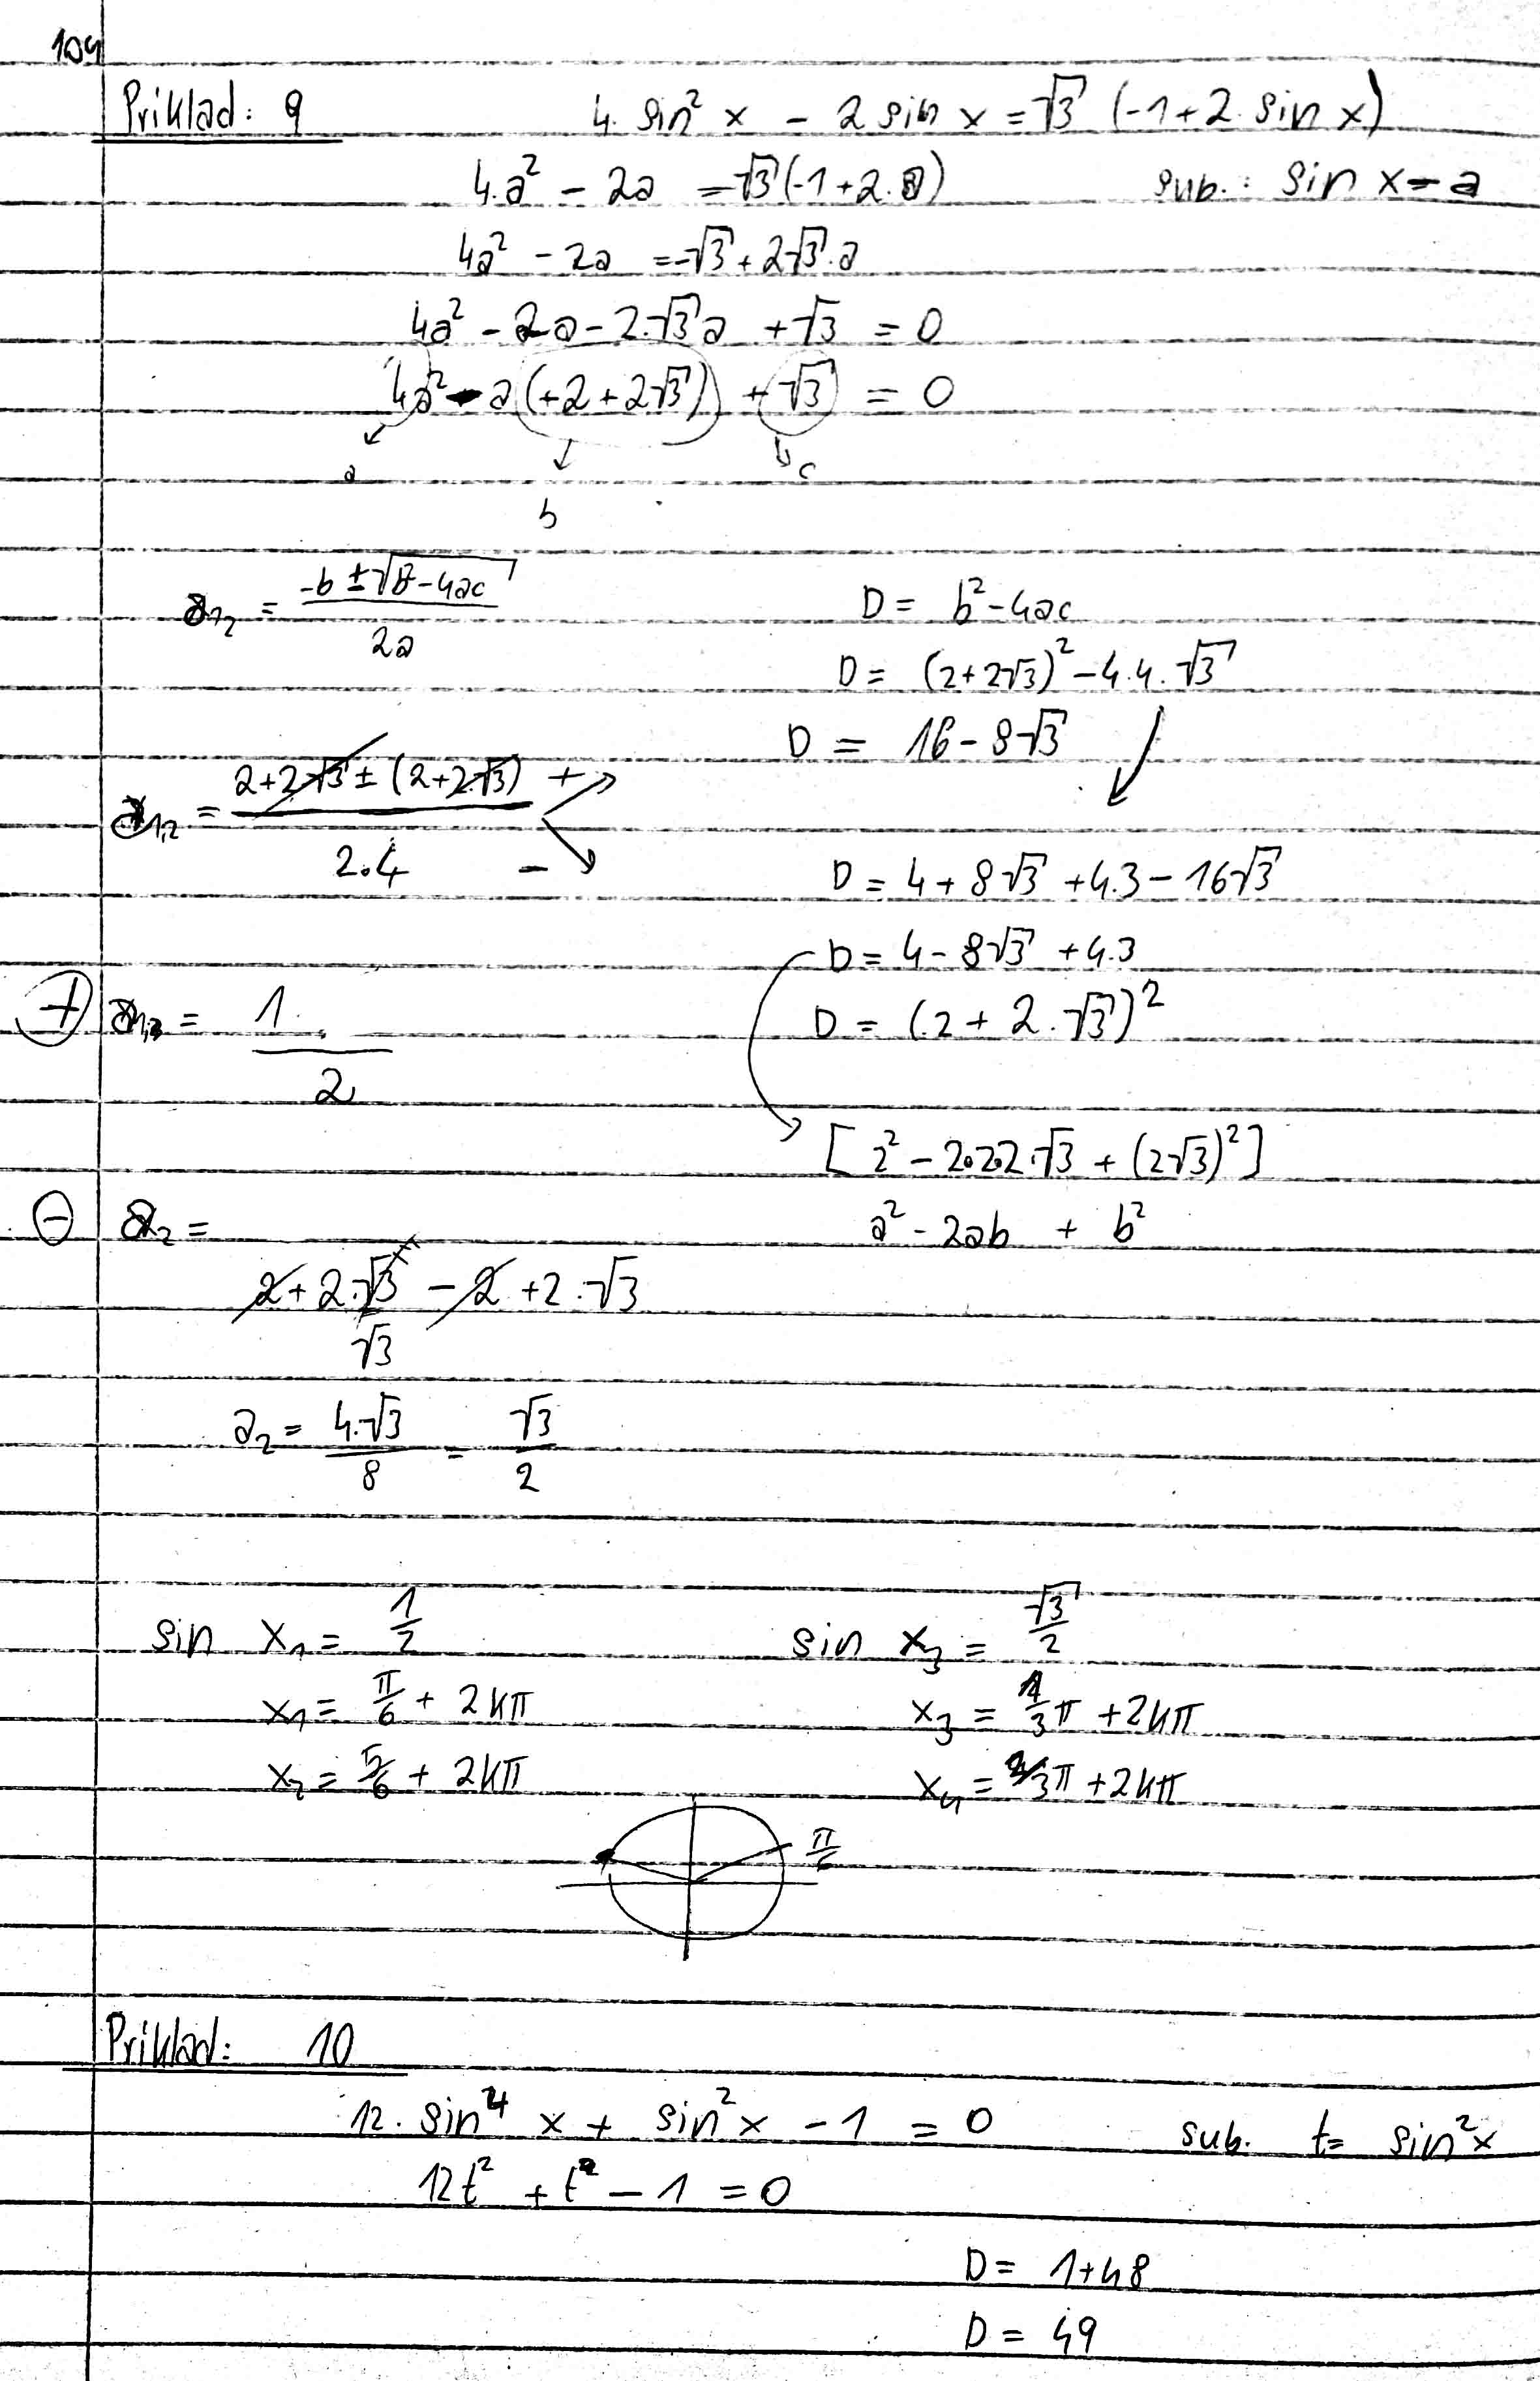 104
Priklad: 9 4. sin² x - 2 sin x = √3 (-1+2. sin x)
4.a² - 2a = √3(-1+2.a) sub.: sin x = a
4a² - 2a = -√3 + 2√3.a
4a² - 2a - 2.√3a + √3 = 0
4a² - a(+2+2√3) + √3 = 0
a b c
a₁₂ = (-b ± √b²-4ac)/2a D = b²-4ac
D = (2+2√3)² - 4.4.√3
D = 16 - 8√3
a₁,₂ = (2+2.√3 ± (2+2.√3))/2.4 + -
D = 4 + 8√3 + 4.3 - 16√3
D = 4 - 8√3 + 4.3
+ = 1/2 D = (2 + 2.√3)²
[2² - 2.2.2.√3 + (2√3)²]
- a₂ = a² - 2ab + b²
2 + 2.√3 - 2 + 2.√3
√3
a₂ = 4.√3/8 = √3/2
sin x₁ = 1/2 sin x₃ = √3/2
x₁ = π/6 + 2kπ x₃ = 1/3π + 2kπ
x₂ = 5/6 + 2kπ x₄ = 2/3π + 2kπ
π/6
Priklad: 10
12. sin⁴ x + sin² x - 1 = 0 sub. t = sin² x
12t² + t - 1 = 0
D = 1+48
D = 49